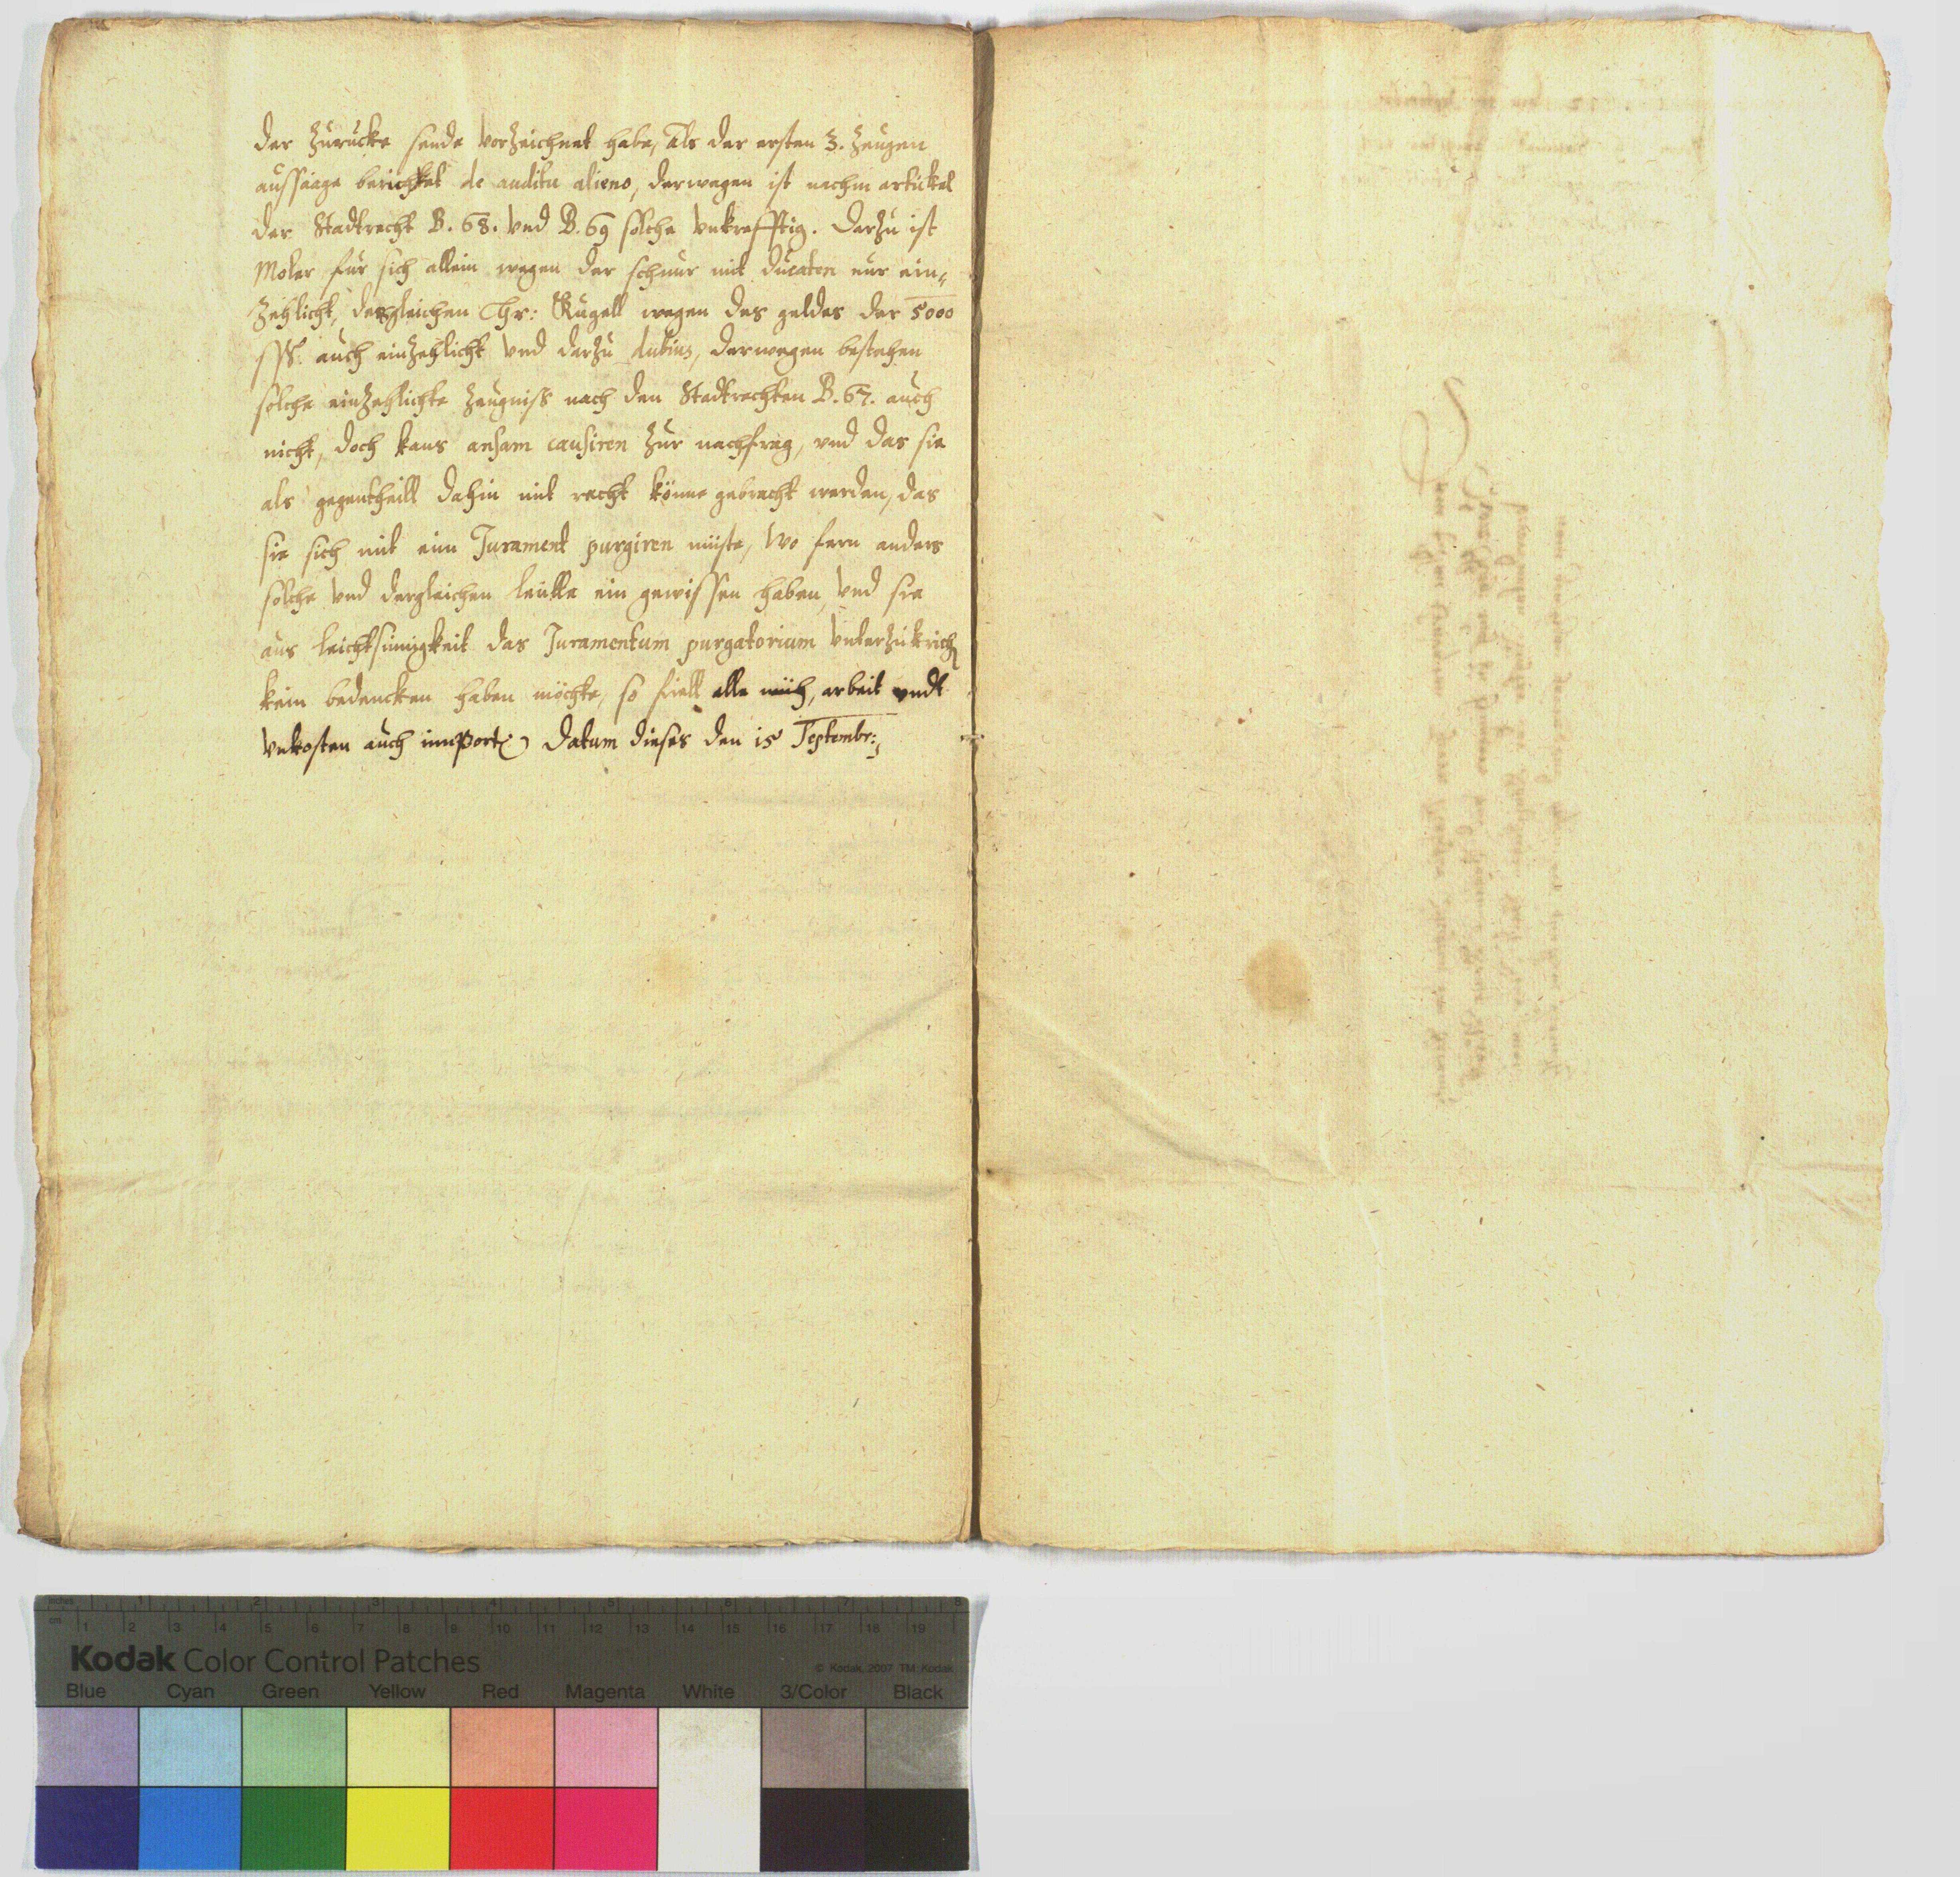 der Zurücke sende vorzeichnet habe, Als der ersten 3. zeugen
aussaage berichtet de auditu alieno, derwegen ist nachm artickel
der Stadtrecht B. 68. vnd B. 69 solche vnkrefftig. Darzu ist
Moler für sich allein wegen der schnur mit ducaten nur ein-
zehlicht, desgleichen Chr: Kugell wegen des geldes der 5000
auch einzehlicht vnd darzu dubius, derwegen bestehen
solche einzehlichte zeugniss nach den Stadtrechten B. 67. auch
nicht, doch kans ansam causiren zur nachfrag, vnd das sie
als gegentheill dahin mit recht könne gebracht werden, das
sie sich mit eim Jurament purgiren müste, Wo fern anders
solche vnd dergleichen leutte ein gewissen haben, vnd sie
aus leichtsinnigkeit das Juramentum purgatorium
kein bedencken haben möchte, so fiell alle müh, arbeit vndt
vnkosten auch Datum dieses den 15 Septembr:
Kodak Color Control Patches
© Kodak, 2007 TM: Kodak
Blue Cyan Green Yellow Red Magenta White 3/Color Black